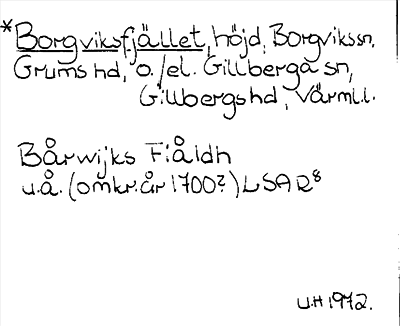 *Borgviksfjället, höjd, Borgvikssn,
Grums hd, o./el. Gillberga sn,
Gillbergs hd, Värml.l.
Bårwijks Fiåldh
u.å. (omkr. år 1700?) LSA R8
U.H 1972.